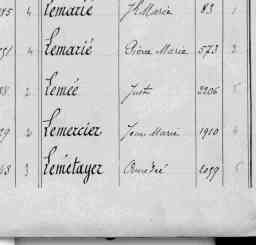 85 4 Lemarié J. Marie 83 1
751 4 Lemarié Pierre Marie 573 2
88 2 Lemée Just 2206 5
29 2 Lemercier Jean Marie 1910 4
48 3 Lemétayer Amédée 2099 5